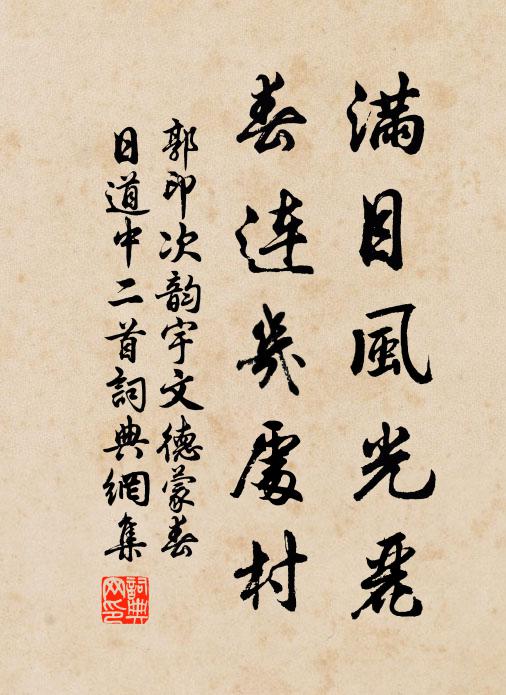 満目風光麗
春連幾處村
郭印次韵宇文德蒙春
日道中二首詞典網集
詞典
网印